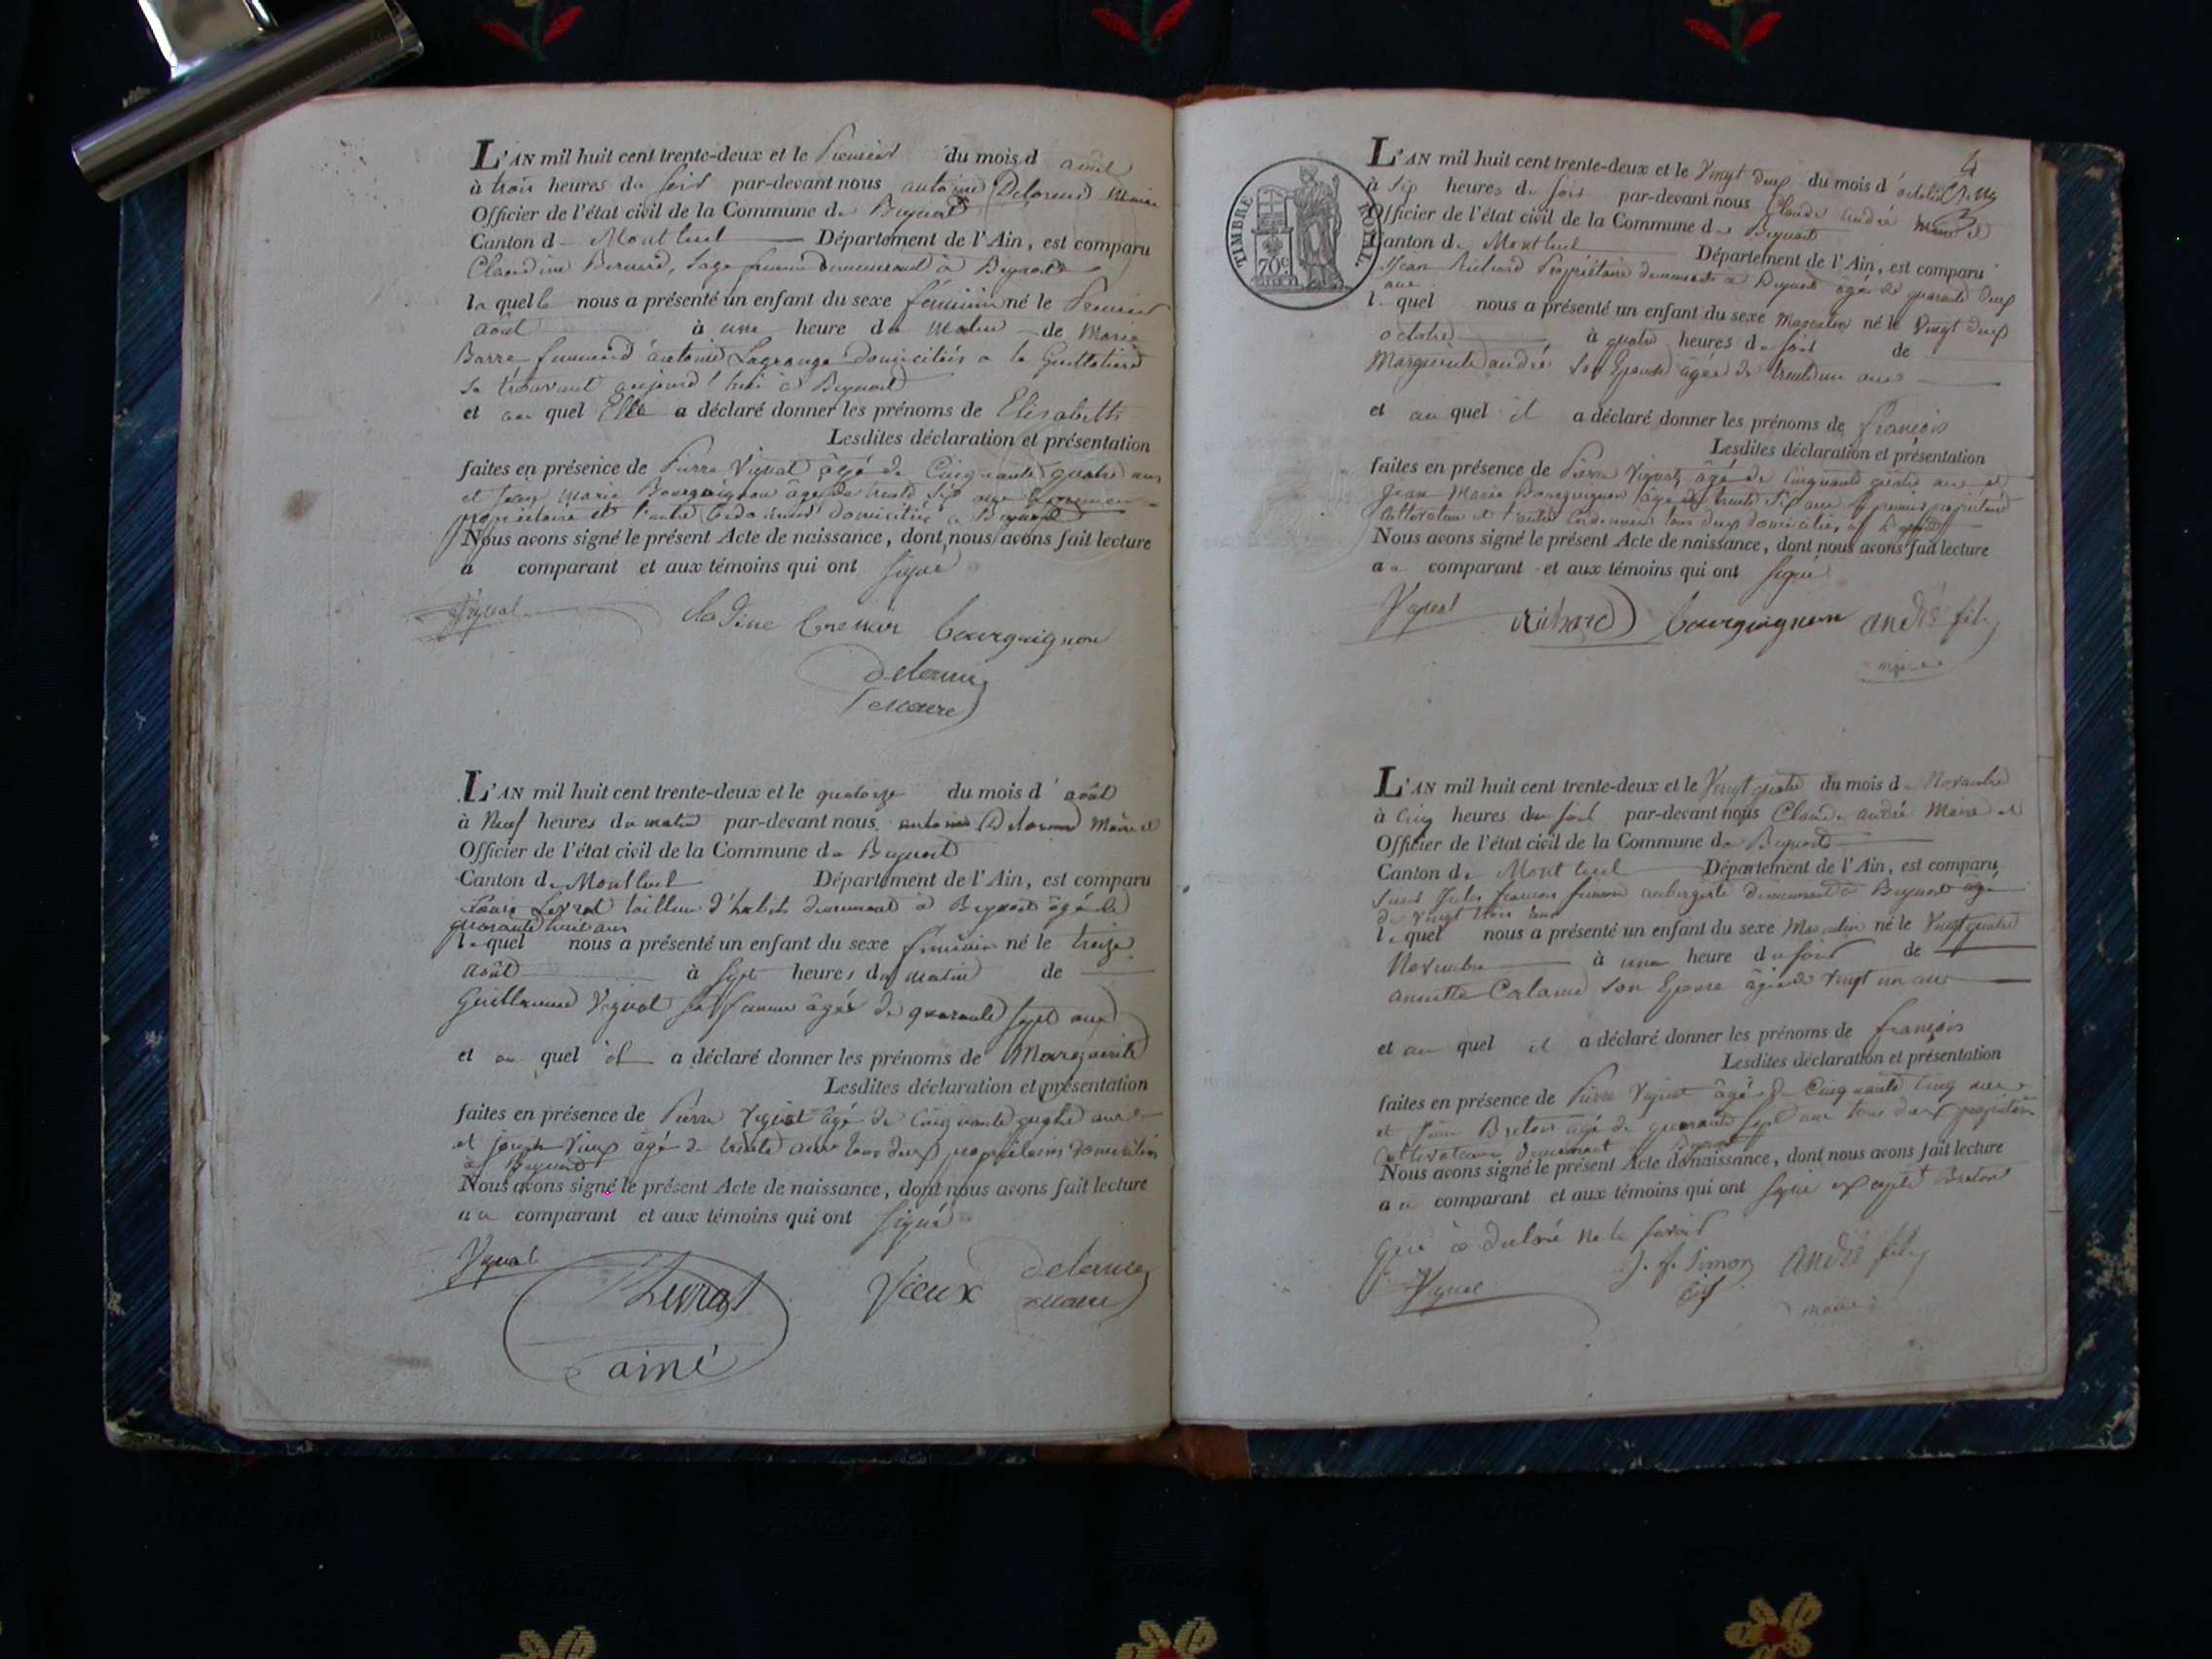 L'AN mil huit cent trente-deux et le Premier du mois d août
à trois heures du soir par-devant nous antoine Delorme Maire
Officier de l'état civil de la Commune de Beynost
Canton de Montluel Département de l'Ain, est comparu
Claudine Bernard, Sage femme demeurant à Beynost
laquelle nous a présenté un enfant du sexe féminin né le Premier
août à une heure du matin de Marie
Barre femme d'antoine Lagrange domiciliés a la Guillotière
se trouvant aujourd'hui à Beynost
et au quel Elle a déclaré donner les prénoms de Elisabeth
Lesdites déclaration et présentation
faites en présence de Pierre Vignat âgé de Cinquante quatre ans
et Jean Marie Bourguignon âgé de trente six ans le premier
propriétaire et l'autre Cordonnier domiciliés a Beynost
Nous avons signé le présent Acte de naissance, dont nous avons fait lecture
a comparant et aux témoins qui ont signé
Vignat
bourguignon
L'AN mil huit cent trente-deux et le quatorze du mois d'août
à Neuf heures du matin par-devant nous antoine Delorme Maire et
Officier de l'état civil de la Commune de Beynost
Canton de Montluel Département de l'Ain, est comparu
Louis Levrat tailleur d'habits demeurant à Beynost âgé de
quarante huit ans
lequel nous a présenté un enfant du sexe féminin né le treize
août à sept heures du matin de
Guillaume Vignat sa femme âgée de quarante sept ans
et au quel il a déclaré donner les prénoms de Marguerite
Lesdites déclaration et présentation
faites en présence de Pierre Vignat âgé de Cinquante quatre ans
et joseph Vieux âgé de trente ans tous deux propriétaires domiciliés
à Beynost
Nous avons signé le présent Acte de naissance, dont nous avons fait lecture
au comparant et aux témoins qui ont signé
Vignat
Levrat Vieux
ainé
4
L'AN mil huit cent trente-deux et le Vingt deux du mois d'octobre
à six heures du soir par-devant nous Claude andré Maire et
Officier de l'état civil de la Commune de Beynost
Canton de Montluel Département de l'Ain, est comparu
Jean Richard Propriétaire demeurant à Beynost âgé de quarante deux
ans
lequel nous a présenté un enfant du sexe Masculin né le Vingt deux
octobre à quatre heures du soir de
Marguerite andré son Epouse âgée de trente un ans
et au quel il a déclaré donner les prénoms de françois
Lesdites déclaration et présentation
faites en présence de Pierre Vignat âgé de Cinquante quatre ans et
Jean Marie Bourguignon âgé de trente six ans le premier propriétaire
cultivateur et l'autre Cordonnier tous deux domiciliés à Beynost
Nous avons signé le présent Acte de naissance, dont nous avons fait lecture
au comparant et aux témoins qui ont signé
Vignat Richard bourguignon andré fils
maire
TIMBRE ROYAL
70c
L'AN mil huit cent trente-deux et le Vingt quatre du mois de Novembre
à Cinq heures du soir par-devant nous Claude andré Maire et
Officier de l'état civil de la Commune de Beynost
Canton de Montluel Département de l'Ain, est comparu
Jules françois Simon aubergiste demeurant à Beynost âgé
de vingt trois ans
lequel nous a présenté un enfant du sexe Masculin né le Vingt quatre
Novembre à une heure du soir de
annette son Epouse âgée de vingt un ans
et au quel il a déclaré donner les prénoms de françois
Lesdites déclaration et présentation
faites en présence de Pierre Vignat âgé de Cinquante Cinq ans
et Breton âgé de quarante sept ans tous deux propriétaires
cultivateurs demeurant Beynost
Nous avons signé le présent Acte de naissance, dont nous avons fait lecture
au comparant et aux témoins qui ont signé excepté Breton
qui a déclaré ne le savoir
Vignat J. f. Simon andré fils
maire